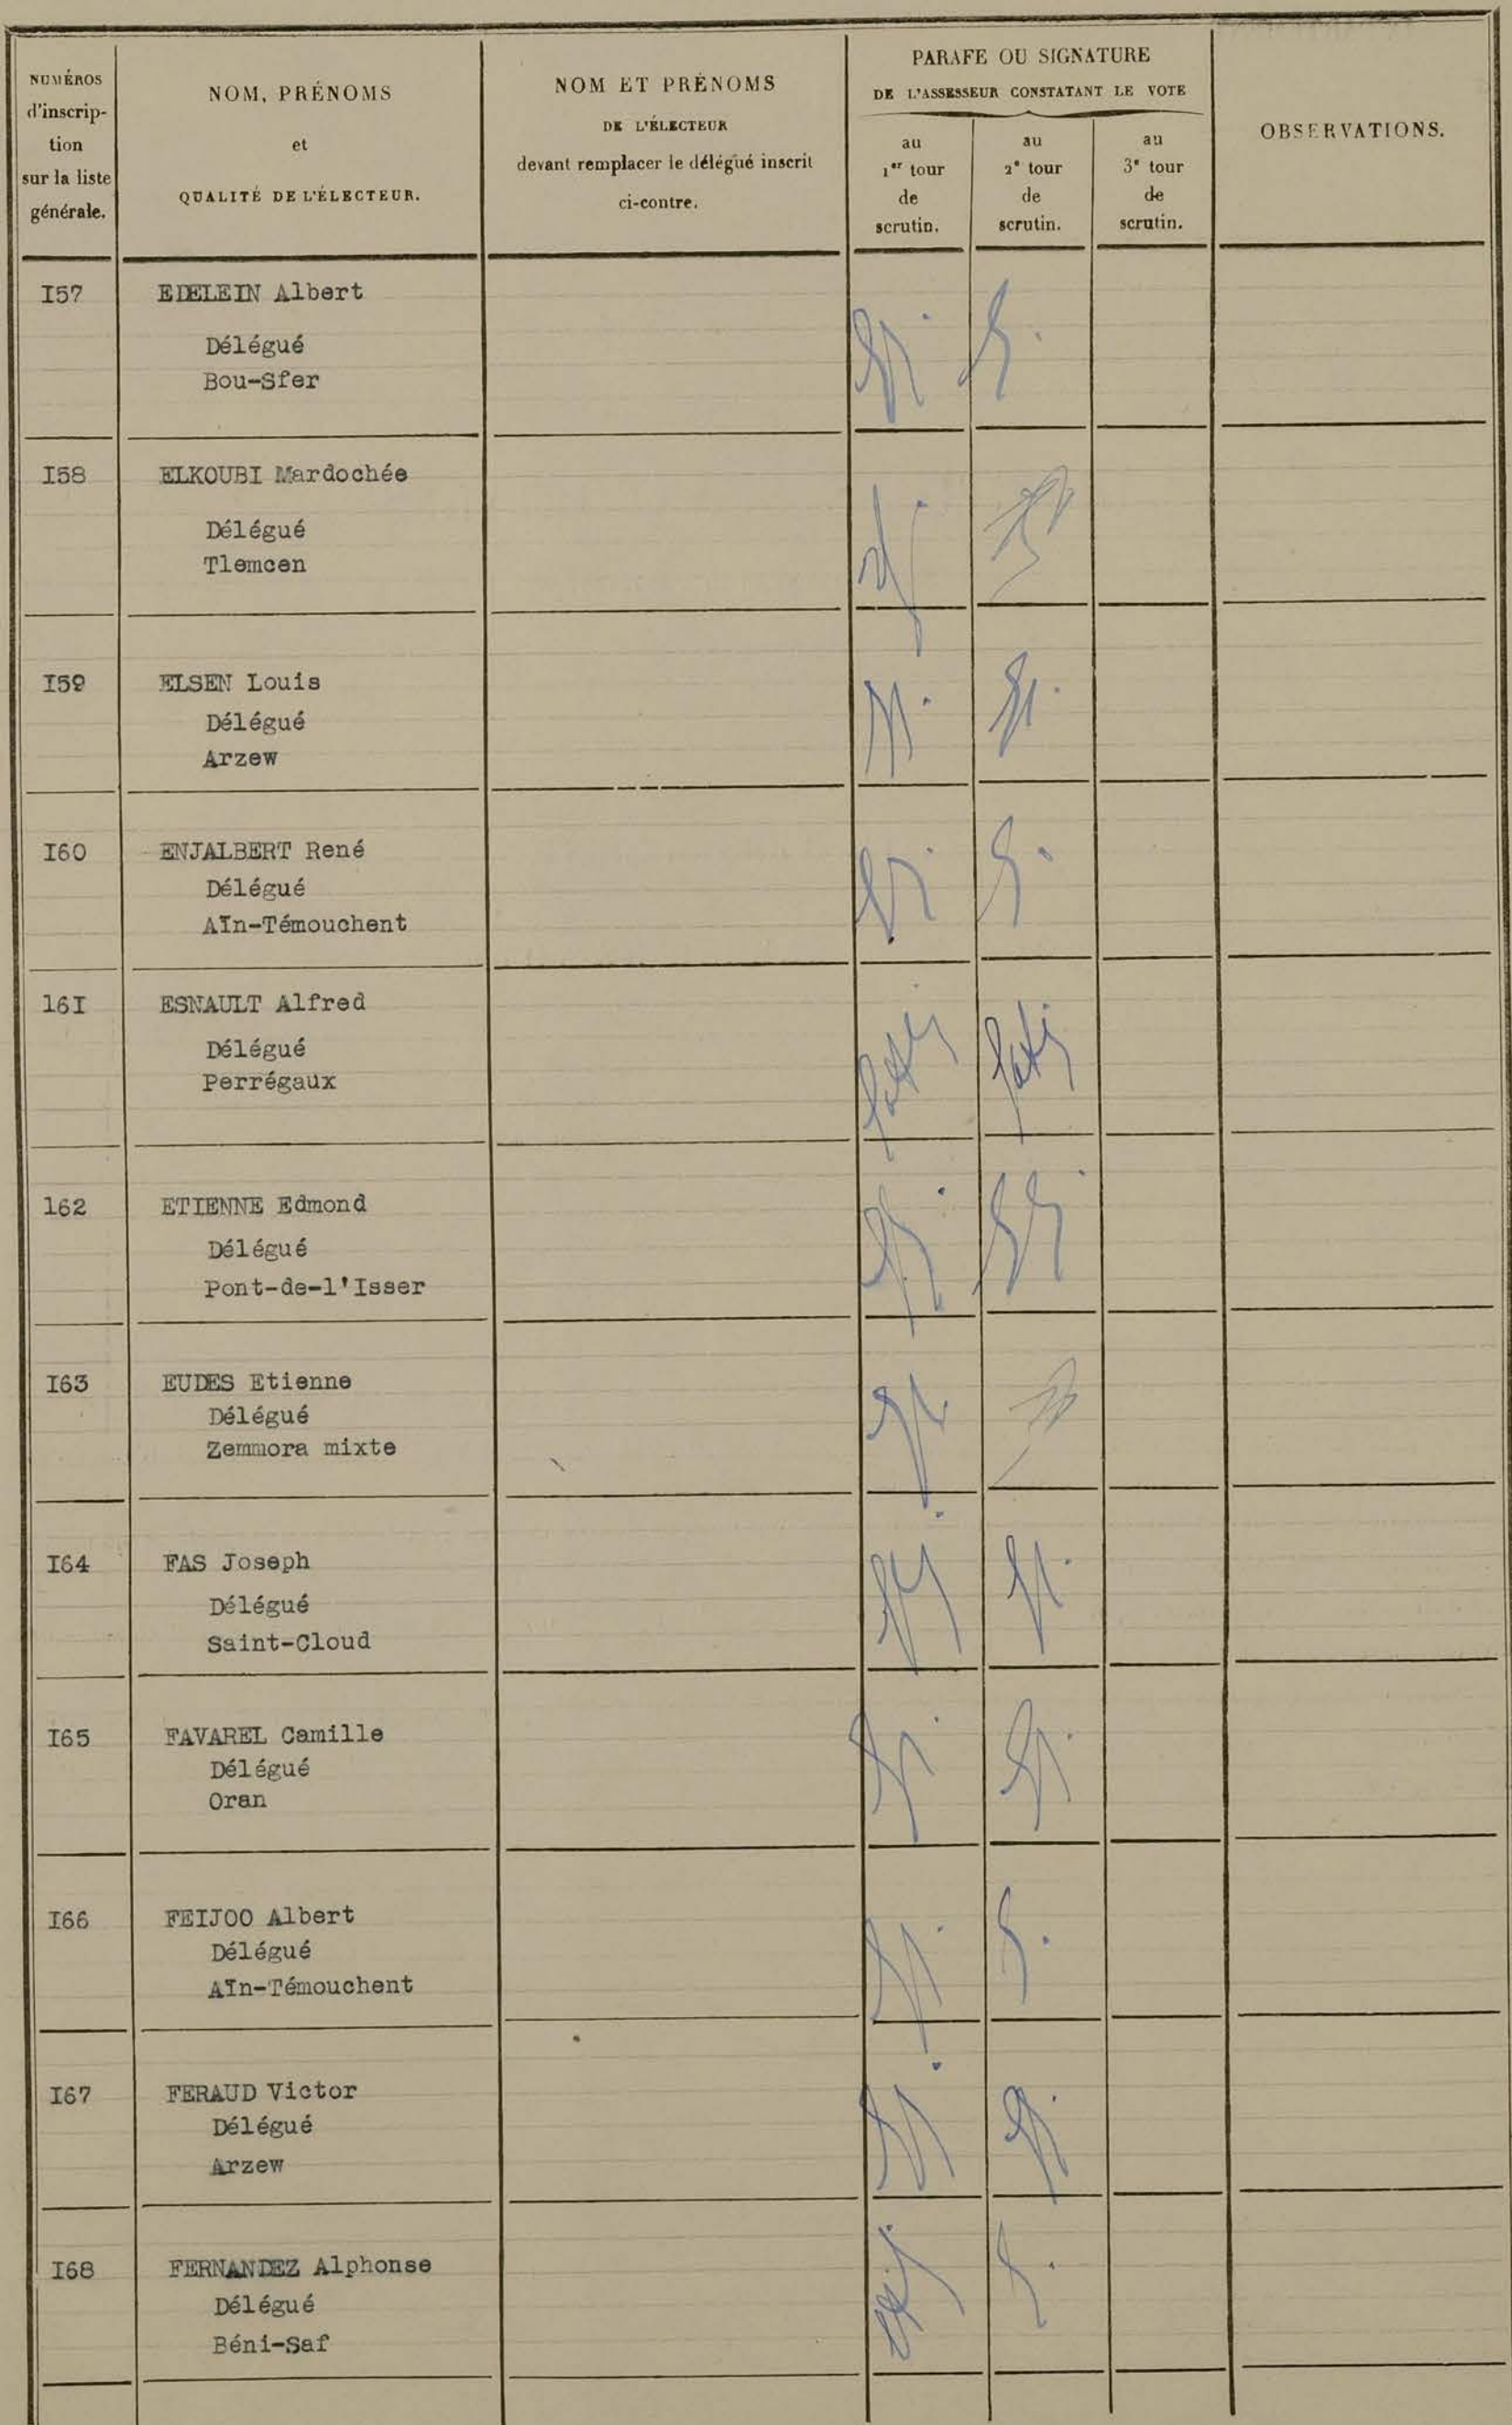 NUMÉROS
d'inscrip-
tion
sur la liste
générale.
NOM, PRÉNOMS
et
QUALITÉ DE L'ÉLECTEUR.
NOM ET PRÉNOMS
DE L'ÉLECTEUR
devant remplacer le délégué inscrit
ci-contre.
PARAFE OU SIGNATURE
DE L'ASSESSEUR CONSTATANT LE VOTE
au
1er tour
de
scrutin.
au
2e tour
de
scrutin.
au
3e tour
de
scrutin.
OBSERVATIONS.
I57 EDELEIN Albert
Délégué
Bou-Sfer
I58 ELKOUBI Mardochée
Délégué
Tlemcen
I59 ELSEN Louis
Délégué
Arzew
I60 ENJALBERT René
Délégué
Aïn-Témouchent
16I ESNAULT Alfred
Délégué
Perrégaux
162 ETIENNE Edmond
Délégué
Pont-de-l'Isser
I63 EUDES Etienne
Délégué
Zemmora mixte
I64 FAS Joseph
Délégué
Saint-Cloud
I65 FAVAREL Camille
Délégué
Oran
I66 FEIJOO Albert
Délégué
Aïn-Témouchent
I67 FERAUD Victor
Délégué
Arzew
I68 FERNANDEZ Alphonse
Délégué
Béni-Saf